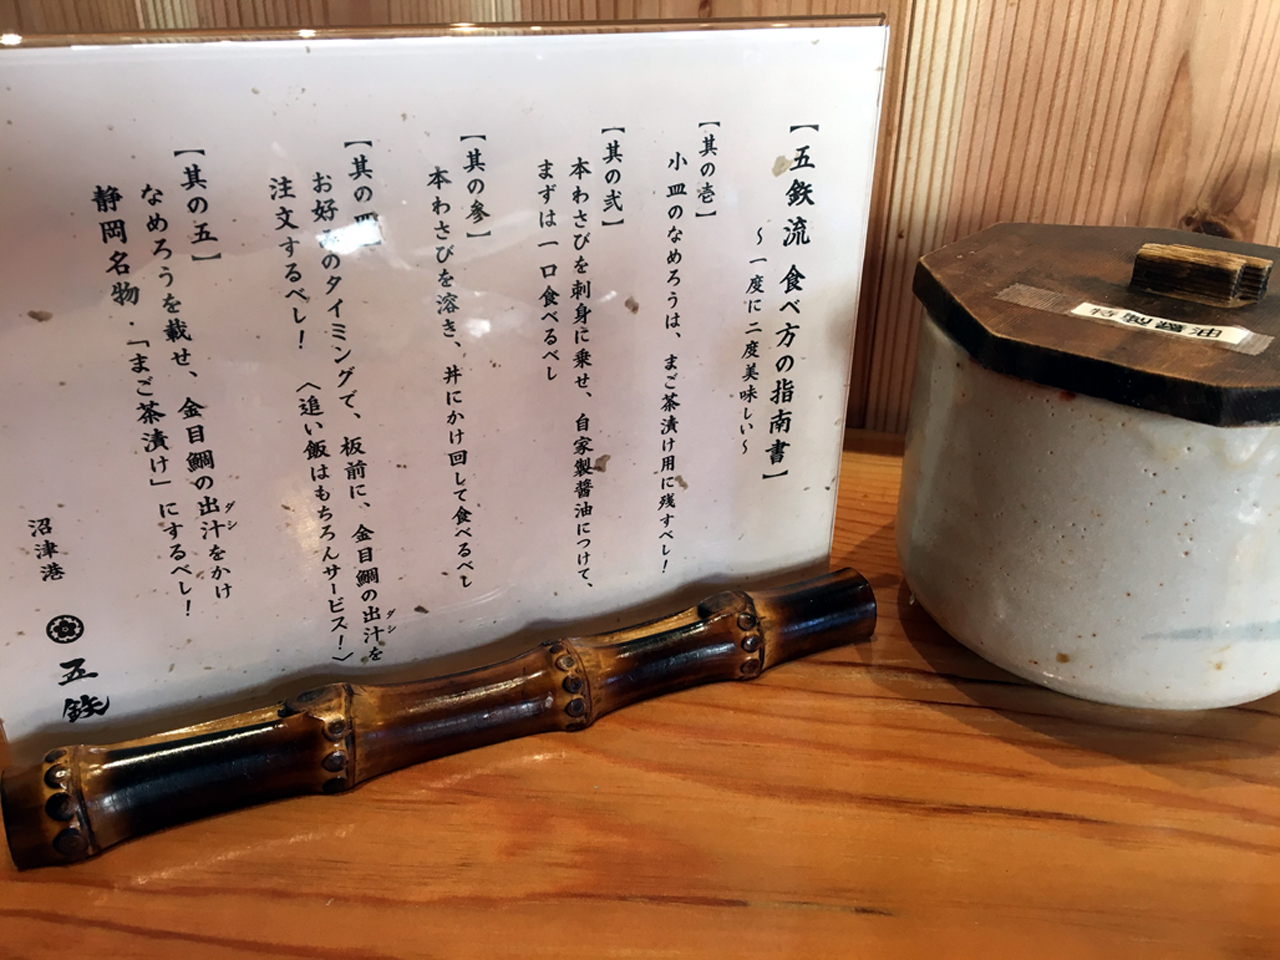 【五鉄流 食べ方の指南書】
～一度に二度美味しい～
【其の壱】
小皿のなめろうは、まご茶漬け用に残すべし！
【其の弐】
本わさびを刺身に乗せ、自家製醤油につけて、
まずは一口食べるべし
【其の参】
本わさびを溶き、丼にかけ回して食べるべし
【其の四】
お好みのタイミングで、板前に、金目鯛の出汁を
ダシ
注文するべし！〈追い飯はもちろんサービス！〉
【其の五】
なめろうを載せ、金目鯛の出汁をかけ
ダシ
静岡名物・「まご茶漬け」にするべし！
沼津港
五鉄
特製醤油